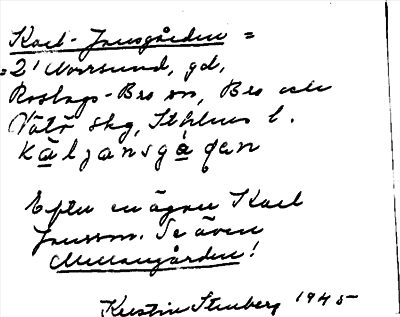 Karl-Jansgården =
= 2' Norrsund, gd,
Roslags-Bro sn, Bro och
Vätö skg, Sthlms l.
kàljansgàḍen
Efter en ägare Karl
Jansson. Se även
Mellangården!
Kerstin Stenberg 1945